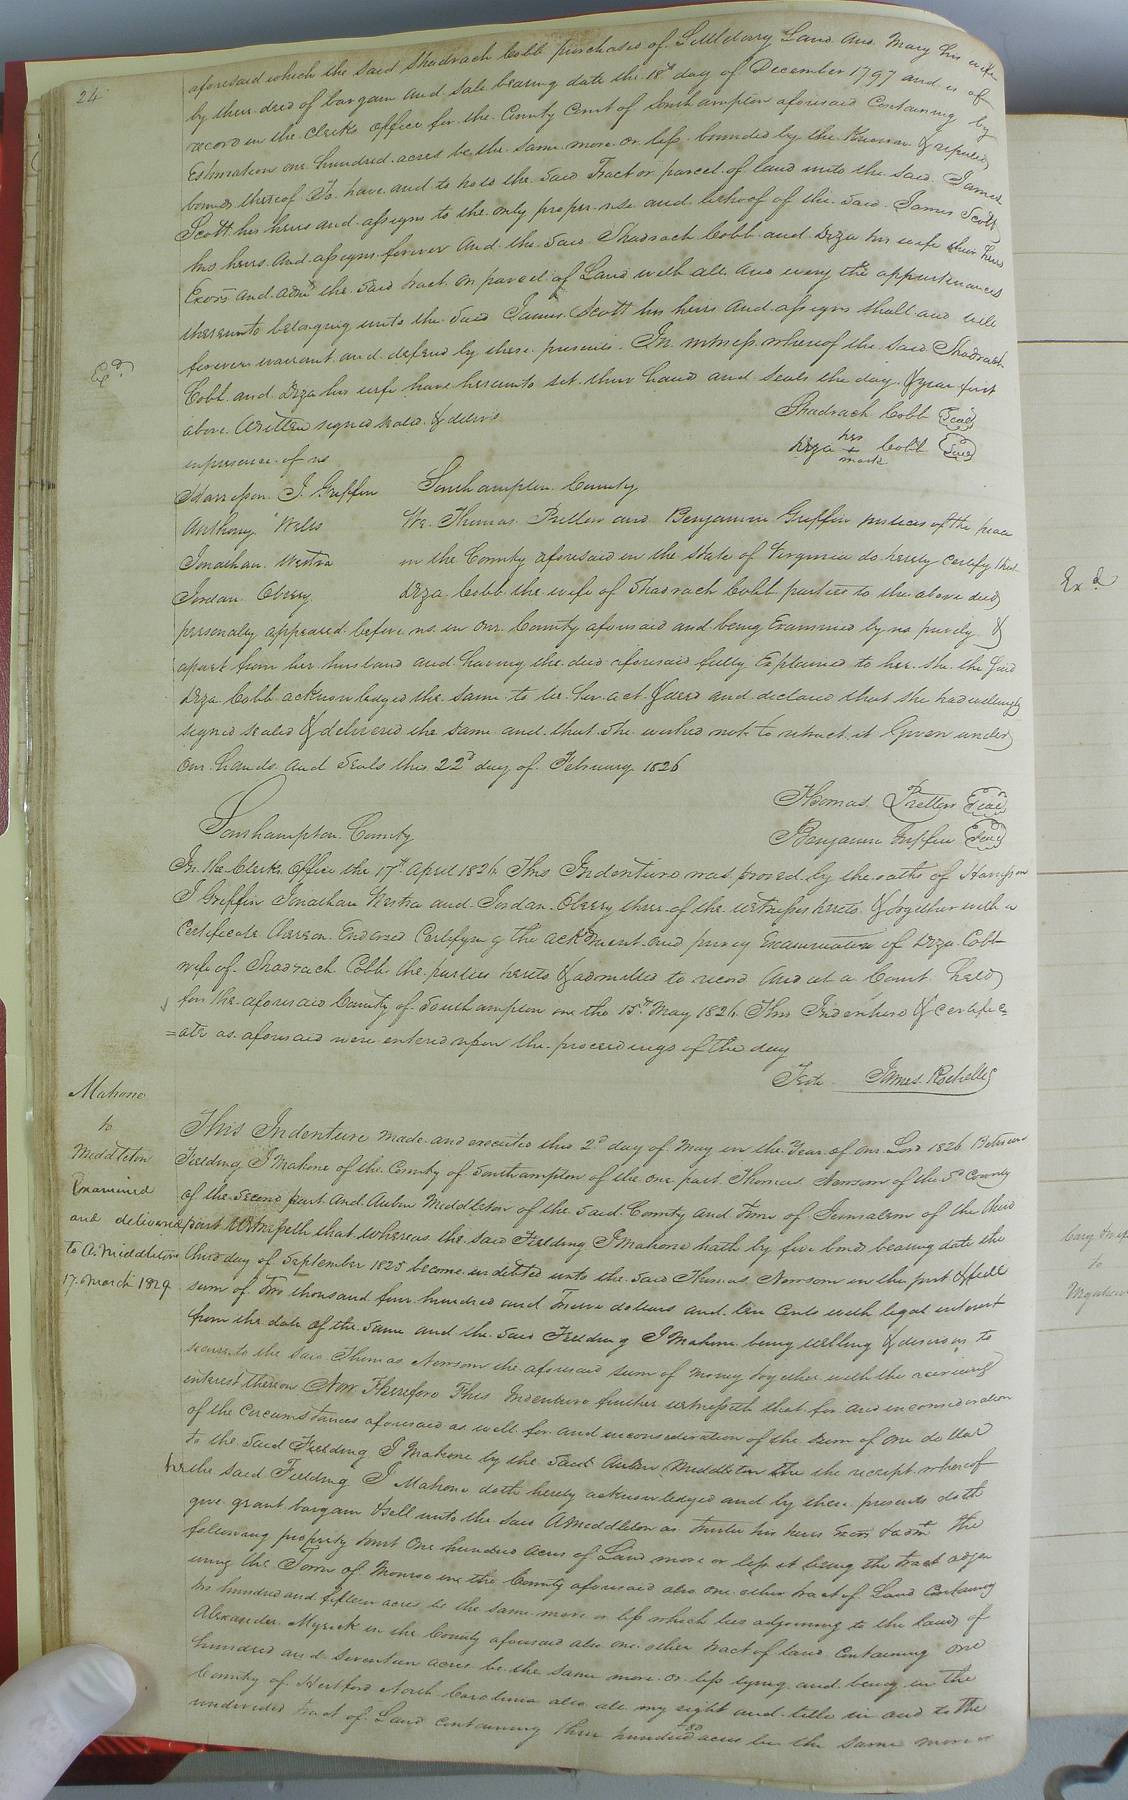 24
aforesaid which the said Shadrach Cobb purchased of Littleberry Land and Mary his wife
by their deed of bargain and sale bearing date the 18th day of December 1797 and is of
record in the Clerks office for the County Court of Southampton aforesaid Containing by
Estimation one hundred acres be the same more or less bounded by the Known & reputed
bounds thereof To have and to hold the said Tract or parcel of land unto the said James
Scott his heirs and assigns to the only proper use and behoof of the said James Scott
his heirs and assigns forever And the said Shadrach Cobb and his wife their heirs
Exors and admrs the said tract or parcel of Land with all and every the appurtenances
thereunto belonging unto the said James Scott his heirs and assigns shall and will
forever warrant and defend by these presents. In witness whereof the said Shadrach
Cobb and his wife have hereunto set their hand and seals the day & year first
above Written signed sealed & delivd
in presence of us
Shadrach Cobb Seal
her
Cobb Seal
+
mark
Exd
Harrison J. Griffin
Anthony Wells
Jonathan Westra
Jordan Oberry
Southampton County
We Thomas Pretlow and Benjamin Griffin justices of the peace
in the County aforesaid in the State of Virginia do hereby certify that
Cobb the wife of Shadrach Cobb parties to the above deed
personaly appeared before us in our County aforesaid and being Examined by us privily &
apart from her husband and having the deed aforesaid fully Explained to her she the said
Cobb acknowledged the same to be her act & deed and declared that she had willingly
signed sealed & delivered the same and that she wished not to retract it Given under
our hands and seals this 22d day of February 1826
Thomas Pretlow Seal
Benjamin Griffin Seal
Southampton County
In the Clerks Office the 17th April 1826 This Indenture was proved by the oaths of Harrison
J Griffin Jonathan Westra and Jordan Oberry three of the witnesses hereto & together with a
Certificate thereon Endorsed Certifying the ackment and privy Examination of Cobb
wife of Shadrach Cobb the parties hereto & admitted to record And at a Court held
for the aforesaid County of Southampton on the 15th May 1826 This Indenture & certific
=ate as aforesaid were entered upon the proceedings of the day
Teste James Rochelle
Mahone
to
Middleton
Examined
and delivered
to A. Middleton
17 March 1829
This Indenture made and executed this 2d day of May in the Year of our Lord 1826 Between
Fielding J Mahone of the County of Southampton of the one part Thomas Newsom of the sd County
of the second part And Middleton of the said County and Town of Jerusalem of the third
part Witnesseth that whereas the said Fielding J Mahone hath by five bond bearing date the
third day of September 1825 become indebted unto the said Thomas Newsom in the just & full
sum of Two thousand four hundred and Twelve dollars and ten Cents with legal interest
from the date of the same and the said Fielding J Mahone being willing & desirous to
secure to the said Thomas Newsom the aforesaid sum of money together with the accruing
interest thereon Now Therefore This Indenture further witnesseth that for and in consideration
of the Circumstances aforesaid as well for and in consideration of the sum of one dollar
to the said Fielding J Mahone by the said Middleton the the receipt whereof
he the said Fielding J Mahone doth hereby acknowledged and by these presents doth
give grant bargain & sell unto the said A Middleton as trustee his heirs Exors & admrs the
following property to wit One hundred acres of Land more or less it being the tract adjoi
ning the Town of Monroe in the County aforesaid also one other tract of Land Containing
two hundred and fifteen acres be the same more or less which lies adjoining to the lands of
Alexander Myrick in the County aforesaid also one other tract of land Containing one
hundred and seventeen acres be the same more or less lying and being in the
County of Hertford North Carolina also all my right and title in and to the
undivided tract of Land containing three hundred acres be the same more or
Exd
to